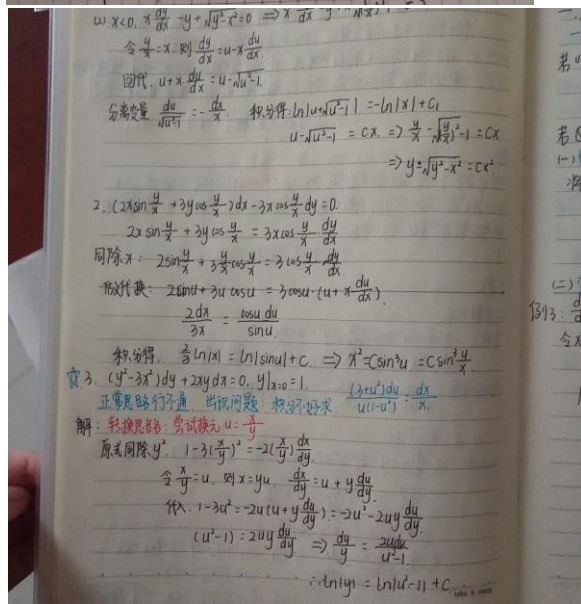 (2) x<0, x dy/dx - y + √(y²-x²) = 0 ⇒ x dy/dx
令 y/x = x. 则 dy/dx = u-x du/dx.
回代. u+x du/dx = u-√(u²-1).
分离变量 du/√(u²-1) = -dx/x. 积分得: ln|u+√(u²-1)| = -ln|x|+C₁
u-√(u²-1) = Cx. ⇒ y/x - √((y/x)²-1) = Cx
⇒ y±√(y²-x²) = Cx².
2. (2x sin y/x + 3y cos y/x) dx - 3x cos y/x dy = 0.
2x sin y/x + 3y cos y/x = 3x cos y/x · dy/dx
同除x: 2sin y/x + 3 y/x cos y/x = 3 cos y/x · dy/dx.
代换: 2sinu + 3u cosu = 3cosu·(u + x du/dx).
2dx/3x = cosu du/sinu.
积分得. 2/3 ln|x| = ln|sinu| + C. ⇒ x² = C sin³u = C sin³ y/x
☆3. (y²-3x²) dy + 2xy dx = 0. y|x=0 = 1.
正常思路行不通. 出现问题: 积分不好求. (3+u²)du/u(1-u²) = dx/x.
解: 转换思路: 尝试换元 u = x/y
原式同除y². 1-3(x/y)² = -2(x/y) dx/dy.
令 x/y = u, 则 x = yu. dx/dy = u + y du/dy.
代入. 1-3u² = -2u(u+y du/dy) = -2u²-2uy du/dy.
(u²-1) = 2uy du/dy ⇒ dy/y = 2udu/u²-1.
∴ ln|y| = ln|u²-1| + C
一.
若u
若
(一)
(二)
例3:
令x